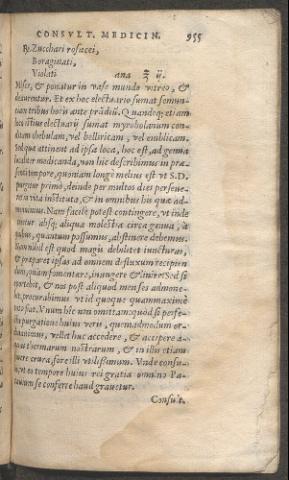 CONSVLT. MEDICIN. 955
℞. Zucchari rosacei,
Boraginati,
Violati ana ℥ ij.
Misce, & ponatur in vase mundo vitreo, &
deaurentur. Et ex hoc electuario sumat semun-
ciam tribus horis ante prādiū. Quandoq; etiam
loco istius electuarij sumat myrobolanum con-
ditam chebulam, vel bellericam, vel emblicam.
Sed quæ attinent ad ipsa loca, hoc est, ad genua
localiter medicanda, non hic describimus in præ-
senti tempore, quoniam longè melius est vt S.D.
purgetur primò, deinde per multos dies perseue-
ret in vita instituta, & in omnibus his quæ ad-
monuimus. Nam facilè potest contingere, vt inde
oriatur absq; aliqua molestia circa genua, à
quibus, quantum possumus, abstinere debemus.
Nam nihil est quod magis debilitet iuncturas,
& præparet ipsas ad omnem defluxum recipien-
dum, quàm fomentare, inungere & linire. Sed si
oportebit, & nos post aliquod menses admone-
bit, procurabimus vt id quoque quammaximè
nos fiat. Vnum hîc non omittam: quòd si perfe-
cta purgatione huius veris, quemadmodum or-
dinauimus, vellet huc accedere, & accipere a-
quas thermarum nostrarum, & in illis etiam
fouere crura, fore illi vtilissimum. Vnde consu-
lo, vt eo tempore huius rei gratia omnino Pa-
tauium se conferre haud grauetur.
Consult.